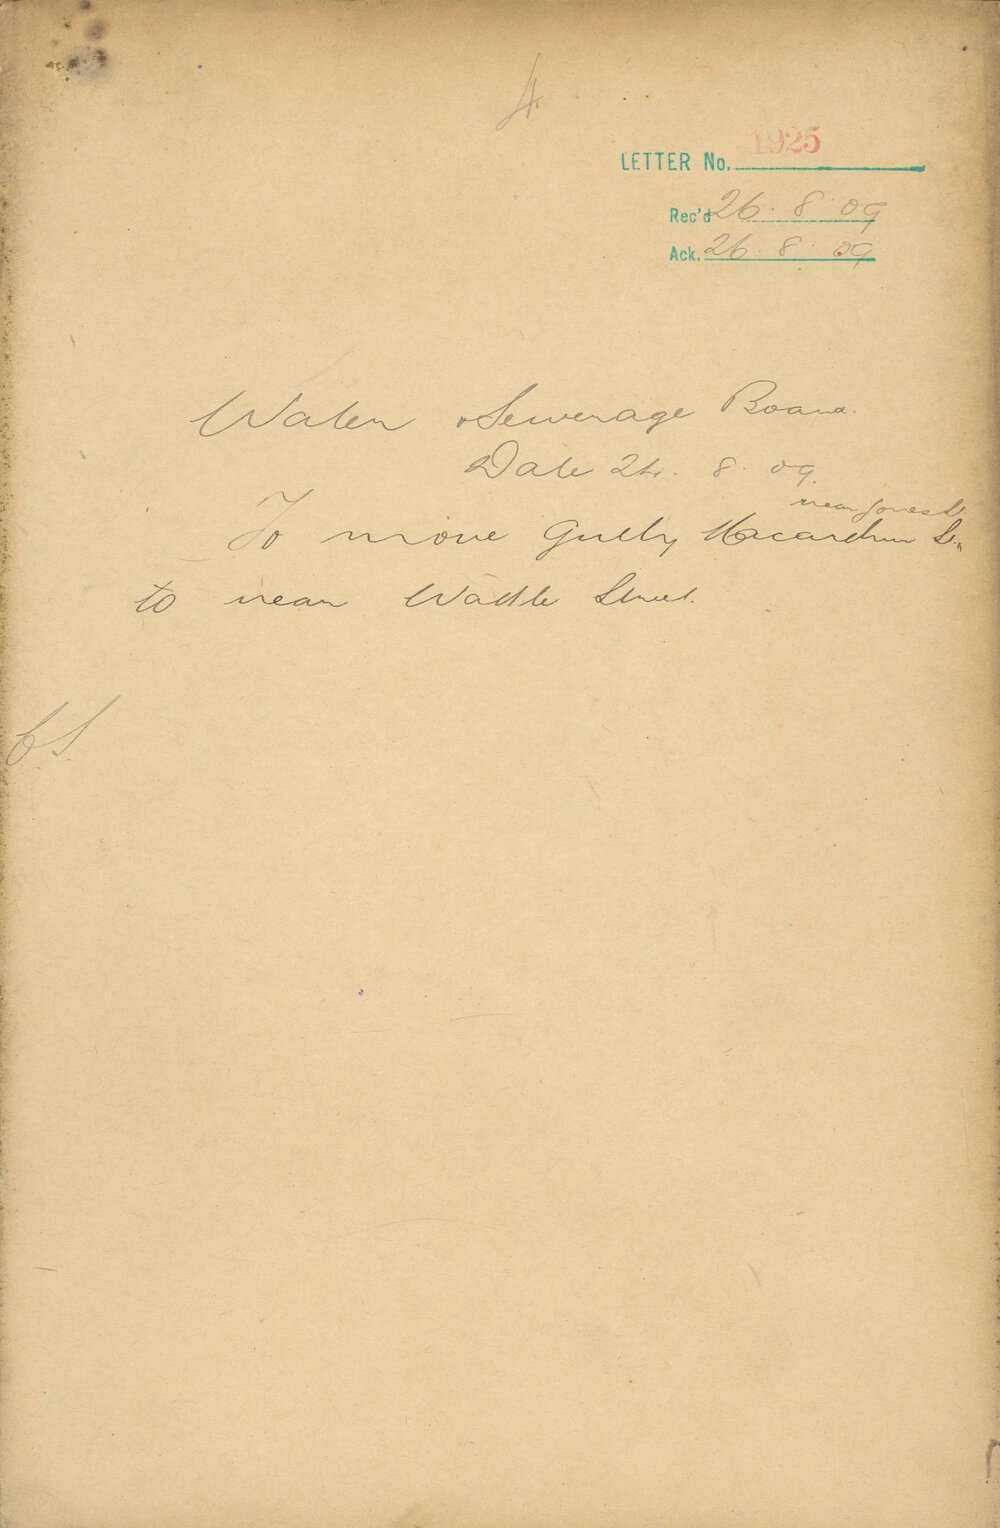 4
LETTER No. 1925
Rec'd 26. 8. 09
Ack. 26. 8. 09
Water & Sewerage Board.
Date 24. 8. 09.
near Jones St.
To move Gully Macarthur St.
to near Wattle Street.